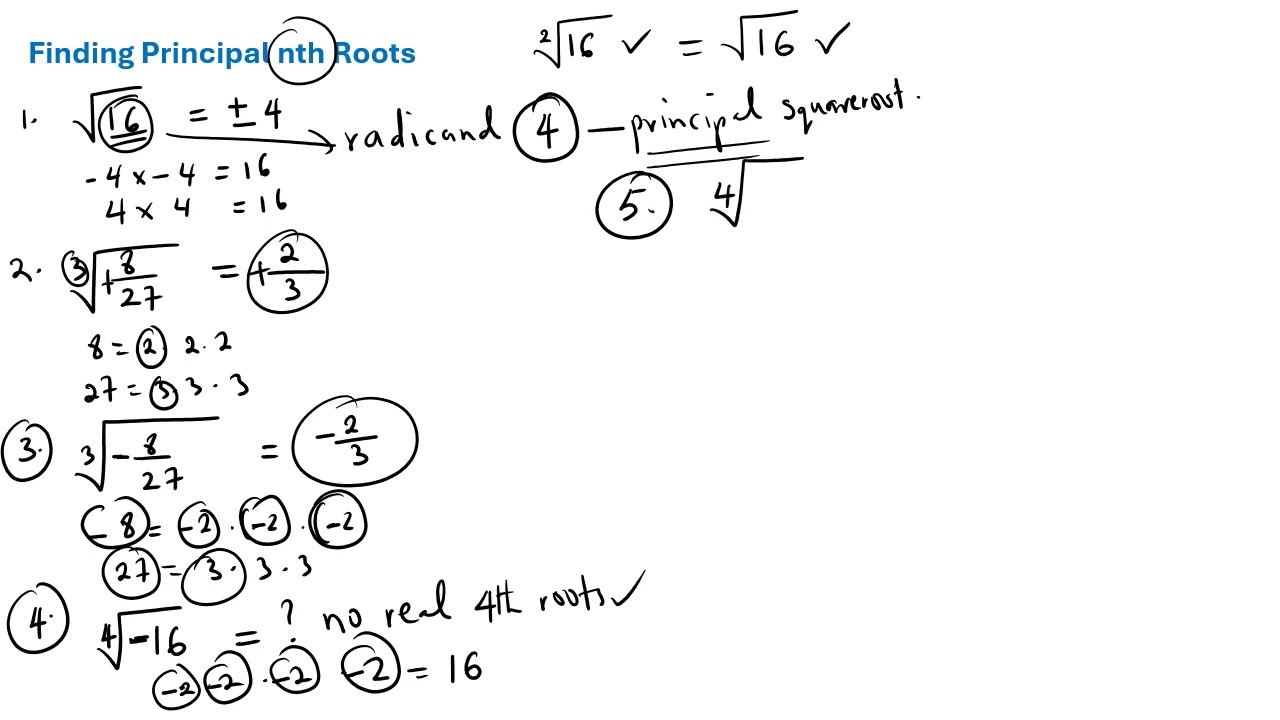 Finding Principal nth Roots
²√16 ✓ = √16 ✓
1. √16 = ± 4
→ radicand 4 — principal squareroot.
-4 x -4 = 16
4 x 4 = 16
5. ⁴√
2. ³√+8/27 = +2/3
8 = 2 . 2 . 2
27 = 3 . 3 . 3
3. ³√-8/27 = -2/3
-8 = -2 . -2 . -2
27 = 3 . 3 . 3
4. ⁴√-16 = ? no real 4th roots ✓
-2 -2 . -2 -2 = 16